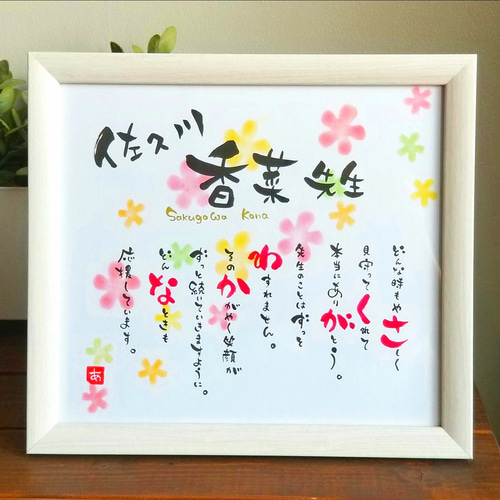 佐久川
香菜先生
Sakugawa Kana
どんな時もやさしく
見守ってくれて
本当にありがとう。
先生のことはずっと
わすれません。
そのかがやく笑顔が
ずっと続いていきますように。
どんなときも
応援しています。
あ